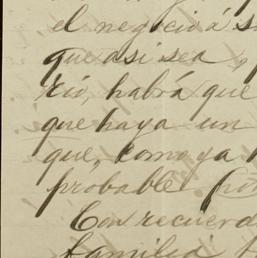 el negocio á s
que asi sea,
cío, habrá que
que haya un
que, como ya
probable
Con recuerd
familia